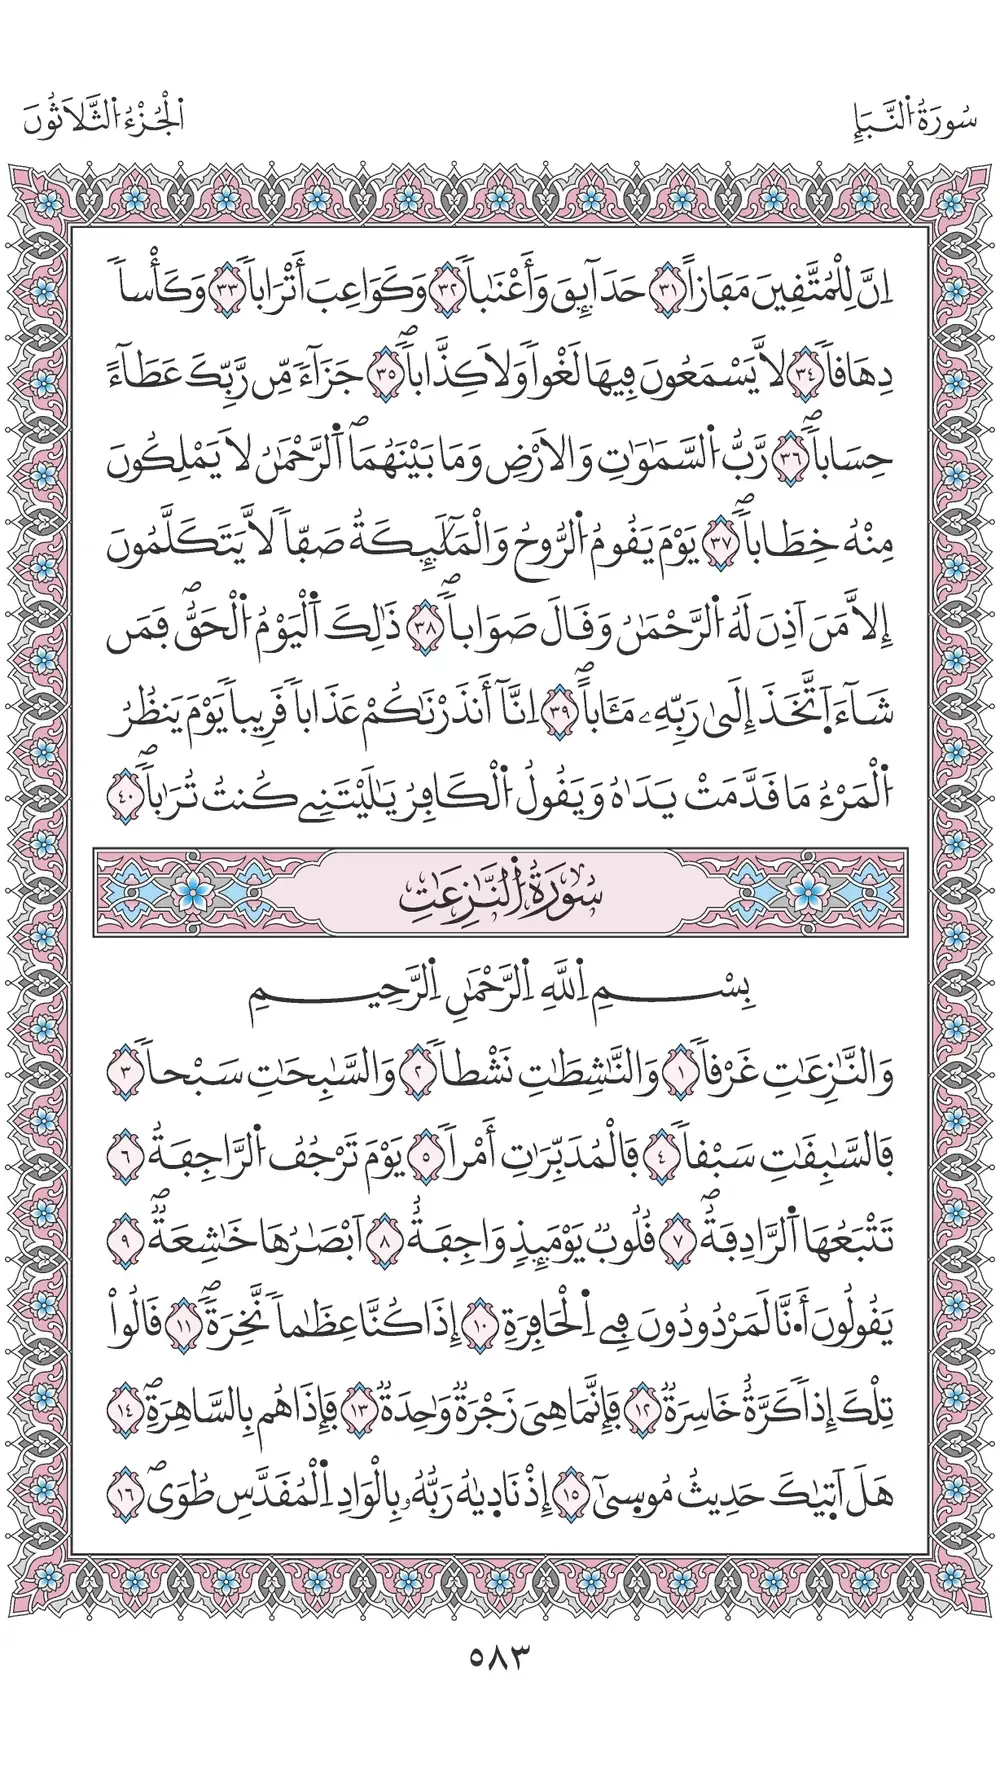 سُورَةُ اُ۬لنَّبَإِ
اَ۬لْجُزْءُ اُ۬لثَّلَاثُونَ
اِنَّ لِلْمُتَّفِينَ مَفَازاً ٣١ حَدَآئِقَ وَأَعْنَٰباٗ ٣٢ وَكَوَاعِبَ أَتْرَاباٗ ٣٣ وَكَأْساٗ
دِهَافاٗ ٣٤ لَّا يَسْمَعُونَ فِيهَا لَغْواٗ وَلَا كِذَّاباٗۖ ٣٥ جَزَآءٗ مِّن رَّبِّكَ عَطَآءً
حِسَاباٗۖ ٣٦ رَّبُّ اُ۬لسَّمَٰوَٰتِ وَالَارْضِ وَمَا بَيْنَهُمَاۖ اَ۬لرَّحْمَٰنُ لَا يَمْلِكُونَ
مِنْهُ خِطَاباٗۖ ٣٧ يَوْمَ يَقُومُ اُ۬لرُّوحُ وَالْمَلَٰٓئِكَةُ صَفّاٗ لَّا يَتَكَلَّمُونَ
إِلَّا مَنَ اَذِنَ لَهُ اُ۬لرَّحْمَٰنُ وَقَالَ صَوَاباٗۖ ٣٨ ذَٰلِكَ اَ۬لْيَوْمُ اُ۬لْحَقُّۖ فَمَن
شَآءَ اَ۪تَّخَذَ إِلَىٰ رَبِّهِۦ مَـَٔاباًۖ ٣٩ اِنَّآ أَنذَرْنَٰكُمْ عَذَاباٗ قَرِيباٗ يَوْمَ يَنظُرُ
اُ۬لْمَرْءُ مَا قَدَّمَتْ يَدَاهُ وَيَقُولُ اُ۬لْكَافِرُ يَٰلَيْتَنِے كُنتُ تُرَٰباٗۖ ٤٠
سُورَةُ اُ۬لنَّٰزِعَٰتِ
بِسْمِ اِ۬للَّهِ اِ۬لرَّحْمَٰنِ اِ۬لرَّحِيمِ
وَالنَّٰزِعَٰتِ غَرْقاٗ ١ وَالنَّٰشِطَٰتِ نَشْطاٗ ٢ وَالسَّٰبِحَٰتِ سَبْحاٗ ٣
فَالسَّٰبِقَٰتِ سَبْقاٗ ٤ فَالْمُدَبِّرَٰتِ أَمْراٗ ٥ يَوْمَ تَرْجُفُ اُ۬لرَّاجِفَةُ ٦
تَتْبَعُهَا اَ۬لرَّادِفَةُۖ ٧ قُلُوبٞ يَوْمَئِذٖ وَاجِفَةٌ ٨ اَبْصَٰرُهَا خَٰشِعَةٞۖ ٩
يَقُولُونَ أَ۟نَّا لَمَرْدُودُونَ فِے اِ۬لْحَافِرَةِ ١٠ إِذَا كُنَّا عِظَٰماٗ نَّخِرَةٗۖ ١١ قَالُواْ
تِلْكَ إِذاٗ كَرَّةٌ خَاسِرَةٞۖ ١٢ فَإِنَّمَا هِيَ زَجْرَةٞ وَٰحِدَةٞ ١٣ فَإِذَا هُم بِالسَّاهِرَةِۖ ١٤
هَلَ اَت۪يٰكَ حَدِيثُ مُوس۪ىٰٓ ١٥ إِذْ نَاد۪يٰهُ رَبُّهُۥ بِالْوَادِ اِ۬لْمُقَدَّسِ طُوَىۖ ١٦
٥٨٣